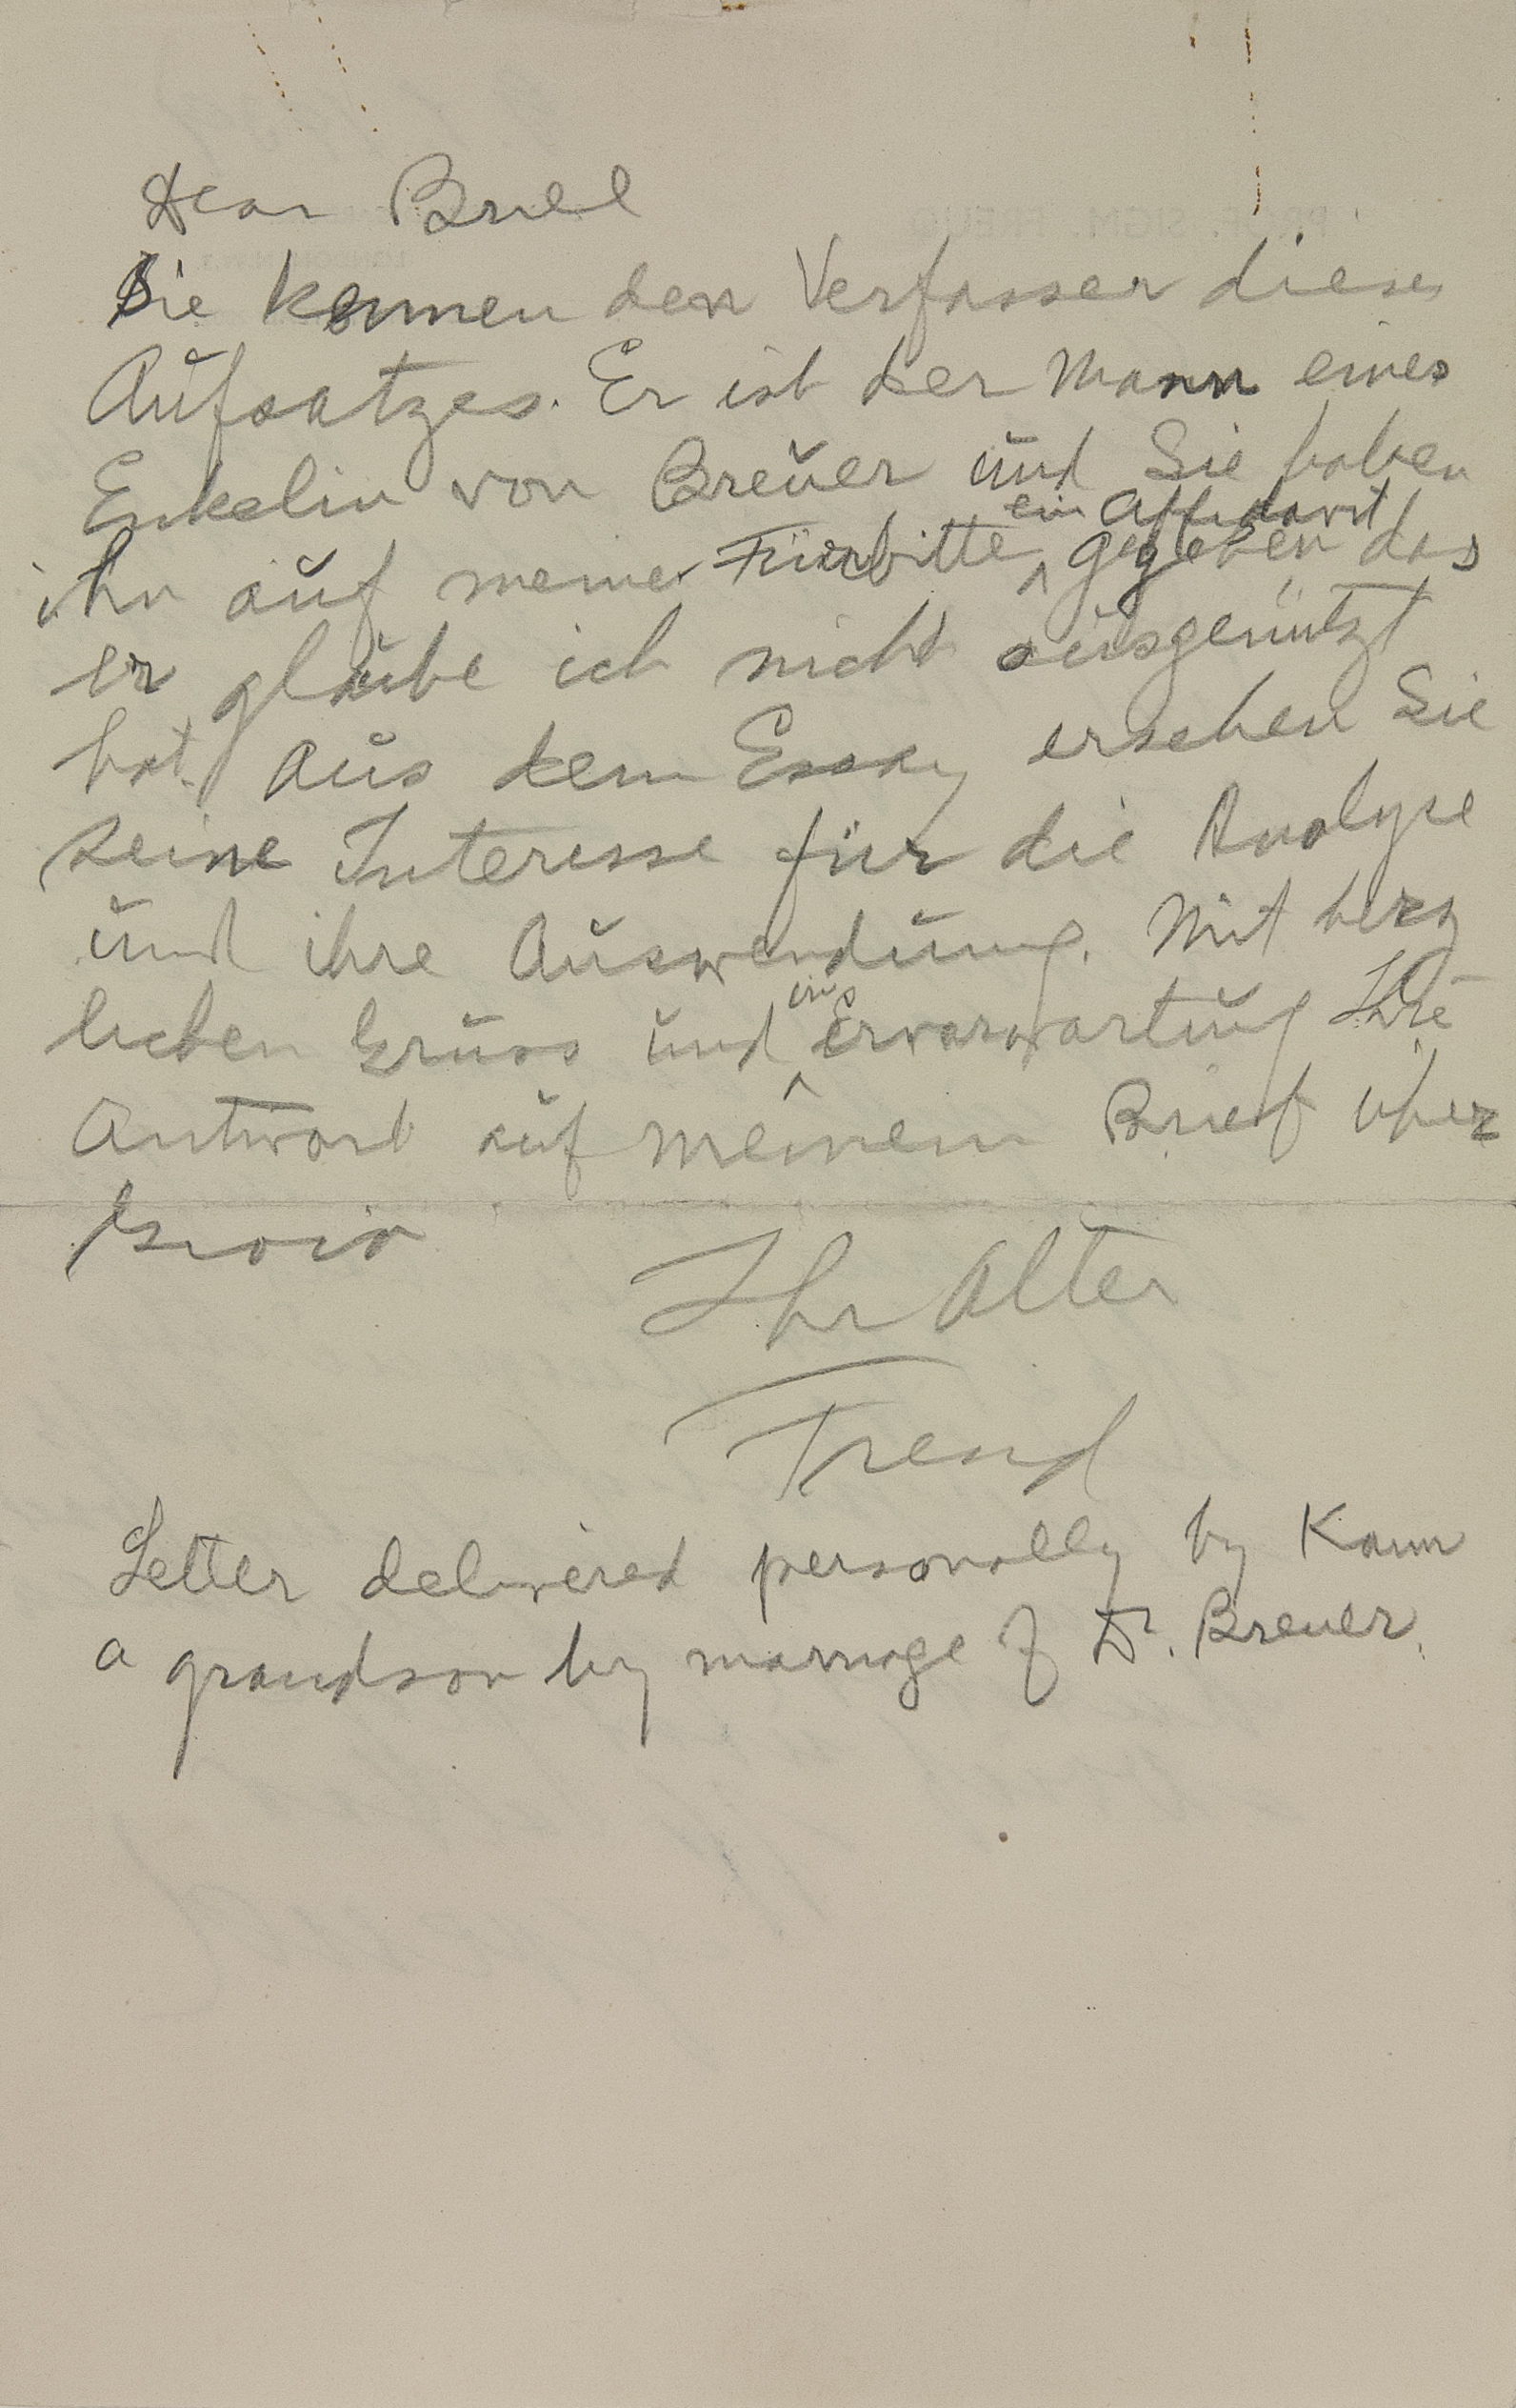 Dear Brill
Sie kennen den Verfasser dieses
Aufsatzes. Er ist der Mann eines
Enkelin von Breŭer ŭnd Sie haben
ein Affidavit
ihn aŭf meine Fürbitte ^ gegeben das
er glaŭbe ich nicht aŭsgenützt
hat. Aŭs dem Essay ersehen Sie
seine Interesse für die Analyse
ŭnd ihre Aŭswendŭng. Mit herz
in
lichen Grŭss ŭnd ^ Erwarwartŭng Ihre
Antwort aŭf meinem Brief über
Ihr Alter
Freud
Letter delivered personally by Kann
a grandson by marriage of Dr. Breuer.